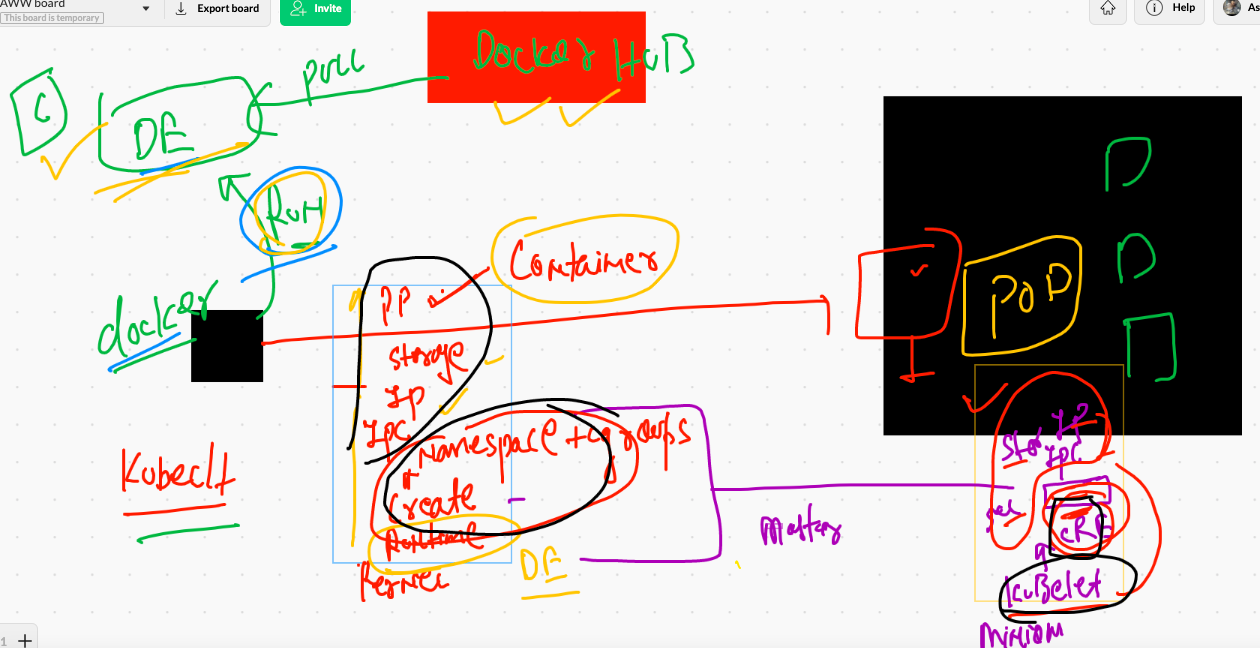 AWW board
This board is temporary
Export board
Invite
Help
As
Docker HUB
PULL
C
DE
RUN
docker
Container
PP
storage
IP
IPC
Namespace + cgroups
+
Create
Runtime
Kernel
DE
Kubeclt
POD
IP
Stor
IPC
CRE
Kubelet
Master
Minion
1 +